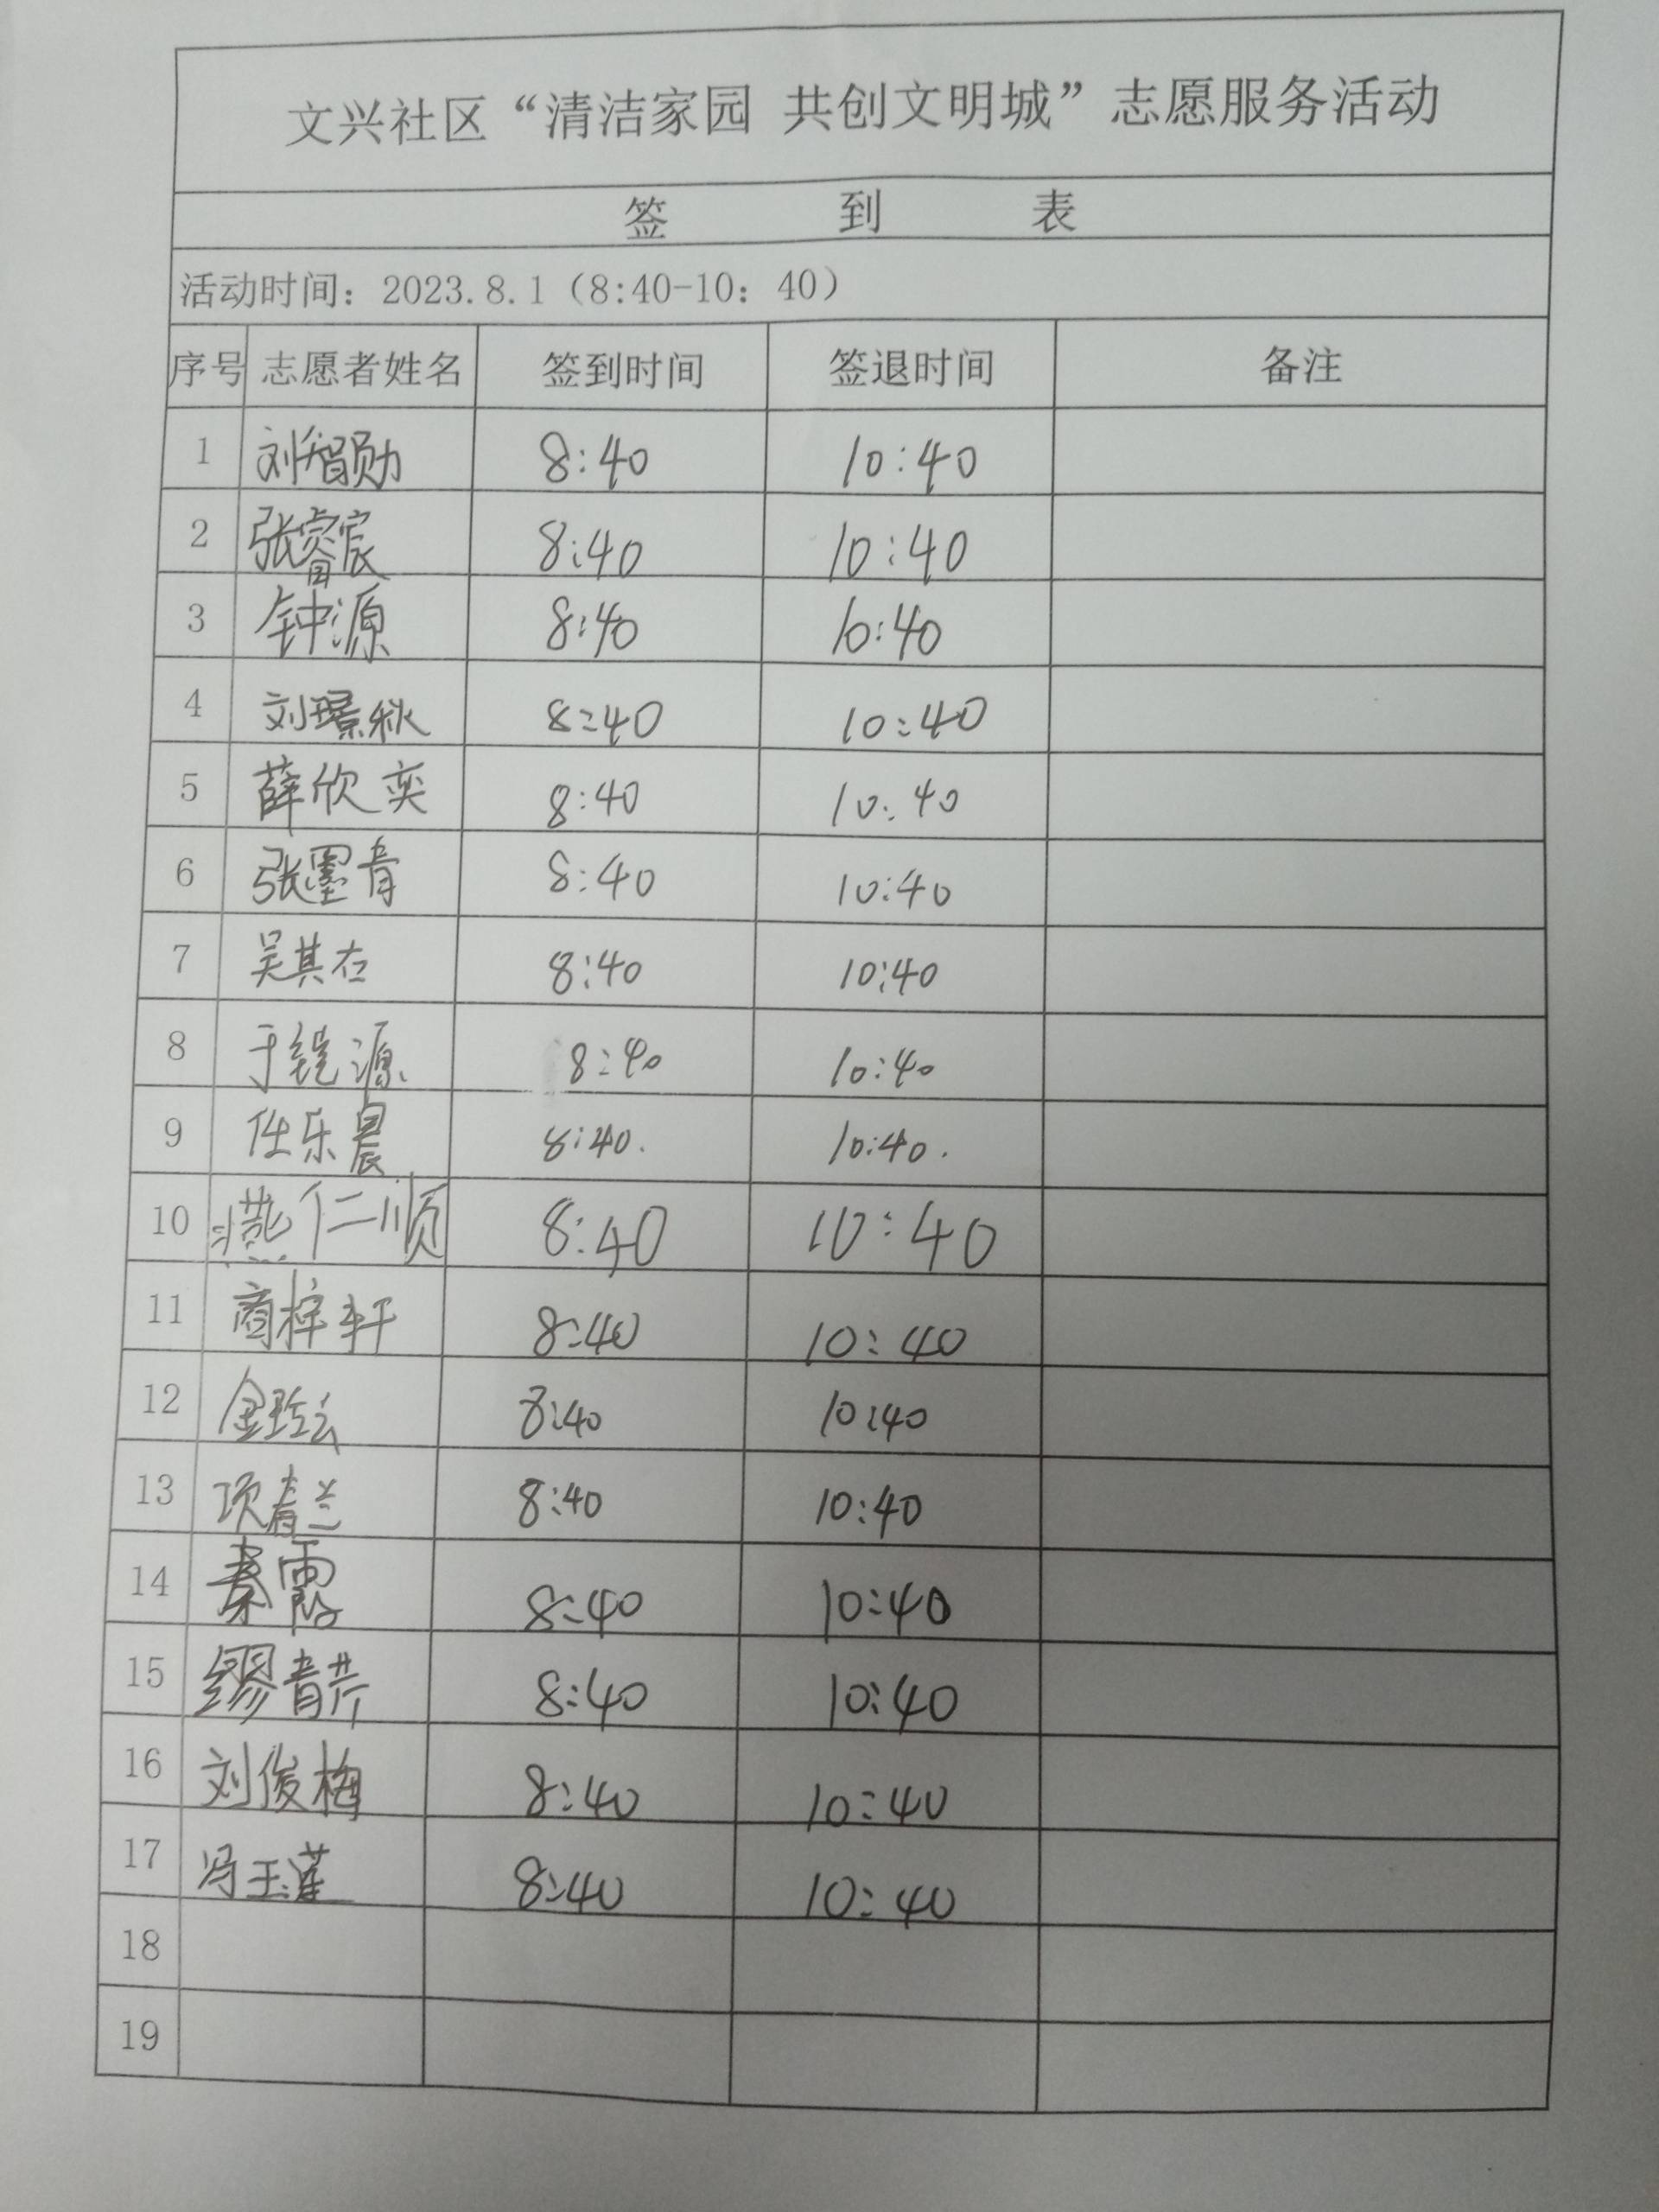 文兴社区“清洁家园 共创文明城”志愿服务活动
签 到 表
活动时间：2023.8.1（8:40-10：40）
序号 志愿者姓名 签到时间 签退时间 备注
1 刘智勋 8:40 10:40
2 张睿宸 8:40 10:40
3 钟源 8:40 10:40
4 刘璟秋 8:40 10:40
5 薛欣奕 8:40 10:40
6 张墨青 8:40 10:40
7 吴其右 8:40 10:40
8 于铠源 8:40 10:40
9 任乐晨 8:40. 10:40.
10 仁顺 8:40 10:40
11 商梓轩 8:40 10:40
12 金 云 8:40 10:40
13 项青兰 8:40 10:40
14 秦霞 8:40 10:40
15 缪青芹 8:40 10:40
16 刘俊梅 8:40 10:40
17 冯玉莲 8:40 10:40
18
19